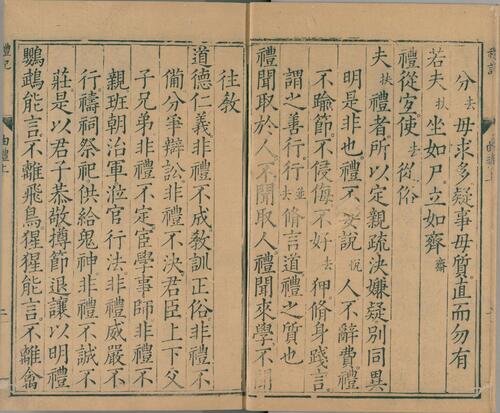 分去毋求多疑事毋質直而勿有
若夫扶坐如尸立如齊齋
禮從宜使去從俗
夫扶禮者所以定親疏決嫌疑別同異
明是非也禮不妄說悅人不辭費禮
不踰節不侵侮不好去狎脩身踐言
謂之善行行並去脩言道禮之質也
禮聞取於人不聞取人禮聞來學不聞
往教
道德仁義非禮不成教訓正俗非禮不
備分爭辯訟非禮不決君臣上下父
子兄弟非禮不定宦學事師非禮不
親班朝治軍涖官行法非禮威嚴不
行禱祠祭祀供給鬼神非禮不誠不
莊是以君子恭敬撙節退讓以明禮
鸚鵡能言不離飛鳥猩猩能言不離禽
禮記
曲禮上
二